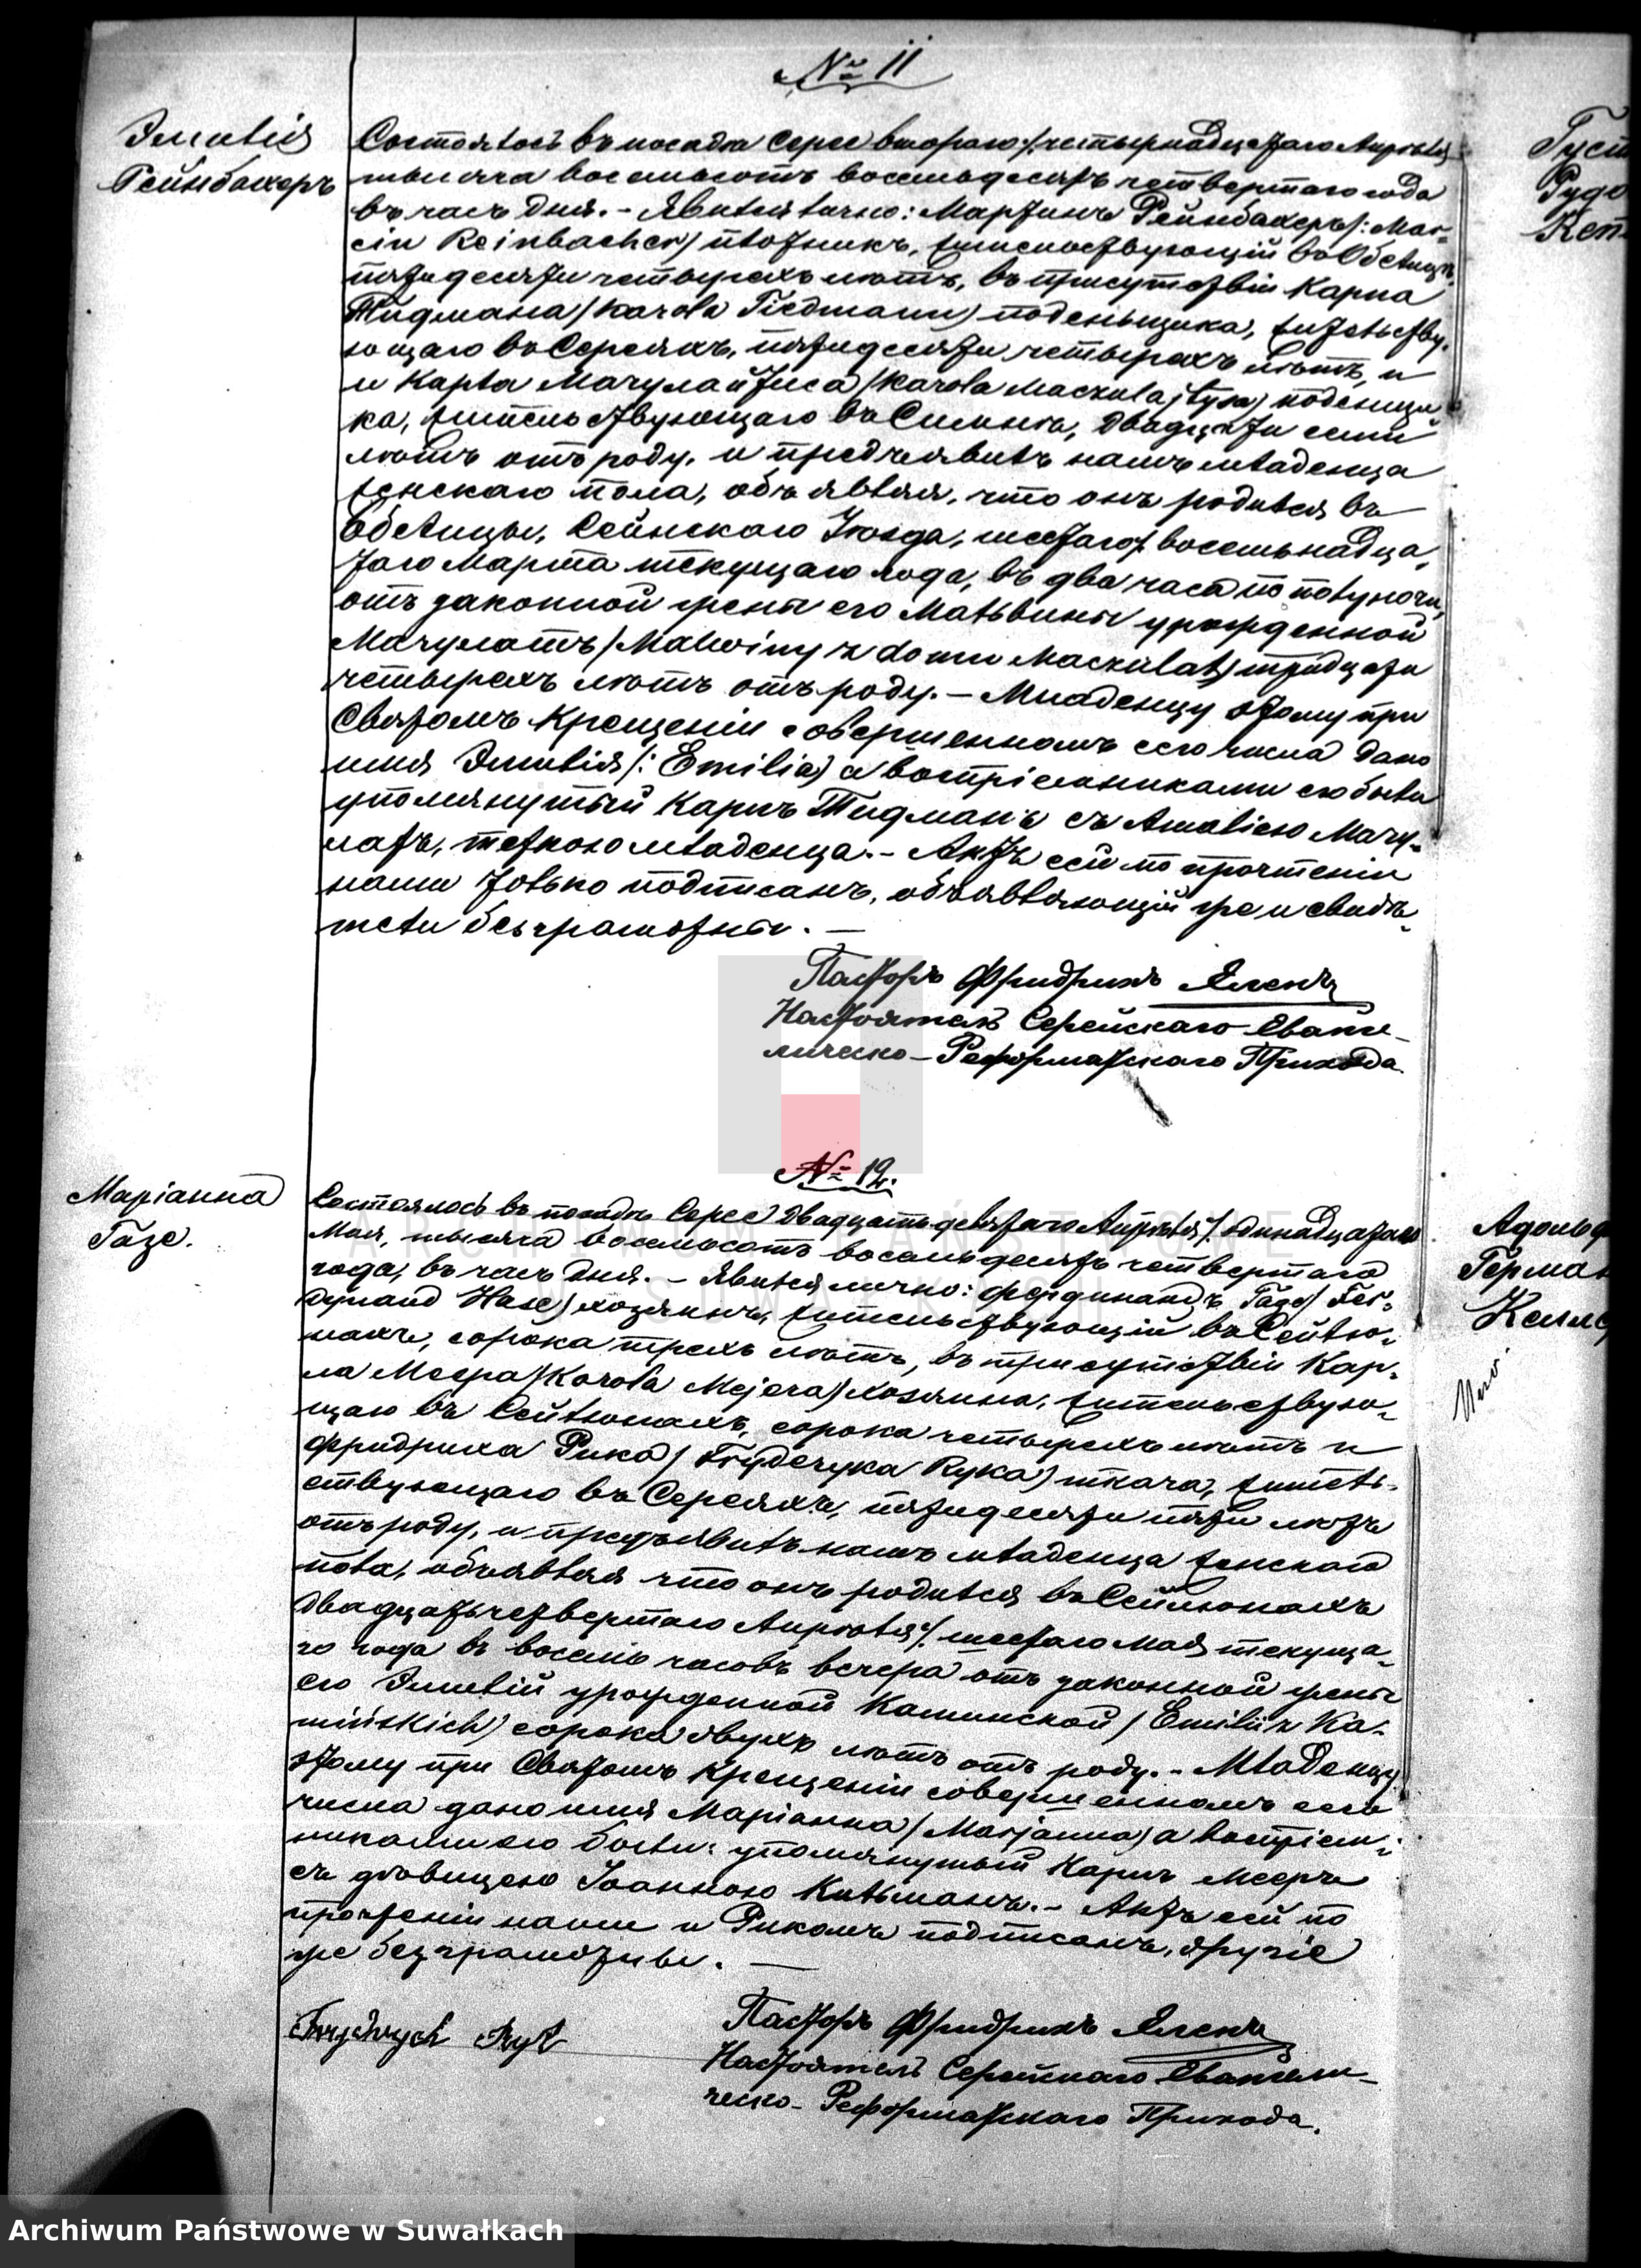 № 11
Эмилія
Рейнбахеръ
Состоялось въ посадѣ Серее второго/четырнадцатаго Апрѣля
тысяча восемьсотъ восемьдесятъ четвертаго года
въ часъ дня. – Явился лично: Мартинъ Рейнбахеръ /: Mar-
cin Reinbacher/ плотникъ, жительствующій въ Обелицѣ
пятидесяти четырехъ лѣтъ, въ присутствіи Карла
Тидмана /Karola Tiedmann/ поденьщика, жительству-
ющаго въ Сереяхъ, пятидесяти четырехъ лѣтъ, и
и Карла Мачулайтиса /Karola Maczulajtysa/ поденщи-
ка, жительствующаго въ двадцати семи
лѣтъ отъ роду, и предъявилъ намъ младенца
женскаго пола, объявляя, что онъ родился въ
Обелицы, Сейнскаго Уѣзда, шестаго/восемьнадца-
таго Марта текущаго года, въ два часа по полуночи,
отъ законной жены его Мальвины урожденной
Мачулатъ /Malwiny z domu Maczulat/ тридцати
четырехъ лѣтъ отъ роду. – Младенцу этому при
Святомъ Крещеніи совершенномъ сего числа дано
имя Эмилія /: Emilia/ а воспріемниками его были
упомянутый Карлъ Тидманъ съ Амаліею Мачу-
латъ, теткою младенца. – Актъ сей по прочтеніи
нами только подписанъ, объявляющій же и свидѣ-
тели безграмотны. –
Пасторъ Фридрихъ Яленъ
Настоятель Серейскаго Еванге-
лическо-Реформатскаго Прихода
№ 12.
Маріанна
Газе.
Состоялось въ посадѣ Серее двадцать девятаго Апрѣля/одинадцатаго
Мая, тысяча восемьсотъ восемьдесятъ четвертаго
года, въ часъ дня. – Явился лично: Фердинандъ Газе/ Fer-
dynand Hase/ хозяинъ, жительствующій въ Сейлю-
нахъ, сорока трехъ лѣтъ, въ присутствіи Кар-
ла Меера /Karola Mejera/ хозяина, жительствую-
щаго въ Сейлюнахъ, сорока четырехъ лѣтъ и
Фридриха Рика / Fryderyka Ryka/ ткача, житель-
ствующаго въ Сереяхъ, пятидесяти пяти лѣтъ
отъ роду, и предъявилъ намъ младенца женскаго
пола, объявляя что онъ родился въ Сейлюнахъ
двадцать четвертаго Апрѣля/шестаго Мая текуща-
го года въ восемь часовъ вечера отъ законной жены
его Эмилій урожденной Каминской / Emilii z Ka-
mińskich/ сорока двухъ лѣтъ отъ роду. – Младенцу
этому при Святомъ Крещеніи совершенномъ сего
числа дано имя Маріанна / Marjanna/ а воспріем-
никами его были: упомянутый Карлъ Мееръ
съ дѣвицею Іоанною Кильманъ. – Актъ сей по
прочтеніи нами и Рикомъ подписанъ, другіе
же безграмотны. –
Frydrych Ryk
Пасторъ Фридрихъ Яленъ
Настоятель Серейскаго Евангели-
ческо-Реформатскаго Прихода.
Адольф
Герман
ARCHIWUM PAŃSTWOWE
Archiwum Państwowe w Suwałkach